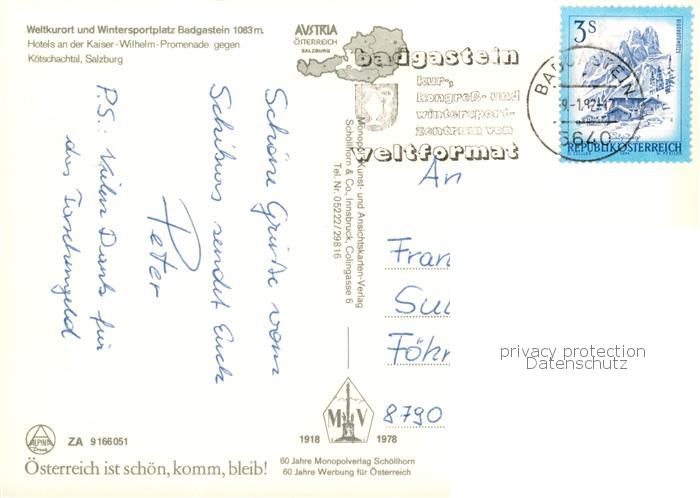 Weltkurort und Wintersportplatz Badgastein 1083 m.
Hotels an der Kaiser-Wilhelm-Promenade gegen
Kötschachtal, Salzburg
AVSTRIA
ÖSTERREICH
SALZBURG
badgastein
kur-,
kongreß- und
wintersport-
zentrum von
weltformat
BADGASTEIN
9.-1.82-17
5640
3S
REPUBLIK ÖSTERREICH
Schöne Grüße vom
Schikurs sendet Euch
Peter
P.S: Vielen Dank für
das Taschengeld
Monopol Kunst- und Ansichtskarten-Verlag
Schöllhorn & Co., Innsbruck, Colingasse 6
Tel. Nr. 05222/29816
An
Fran
Su
Föhr
8790
privacy protection
Datenschutz
ALPINA
Druck
ZA 9166051
Österreich ist schön, komm, bleib!
M V
1918 1978
60 Jahre Monopolverlag Schöllhorn
60 Jahre Werbung für Österreich